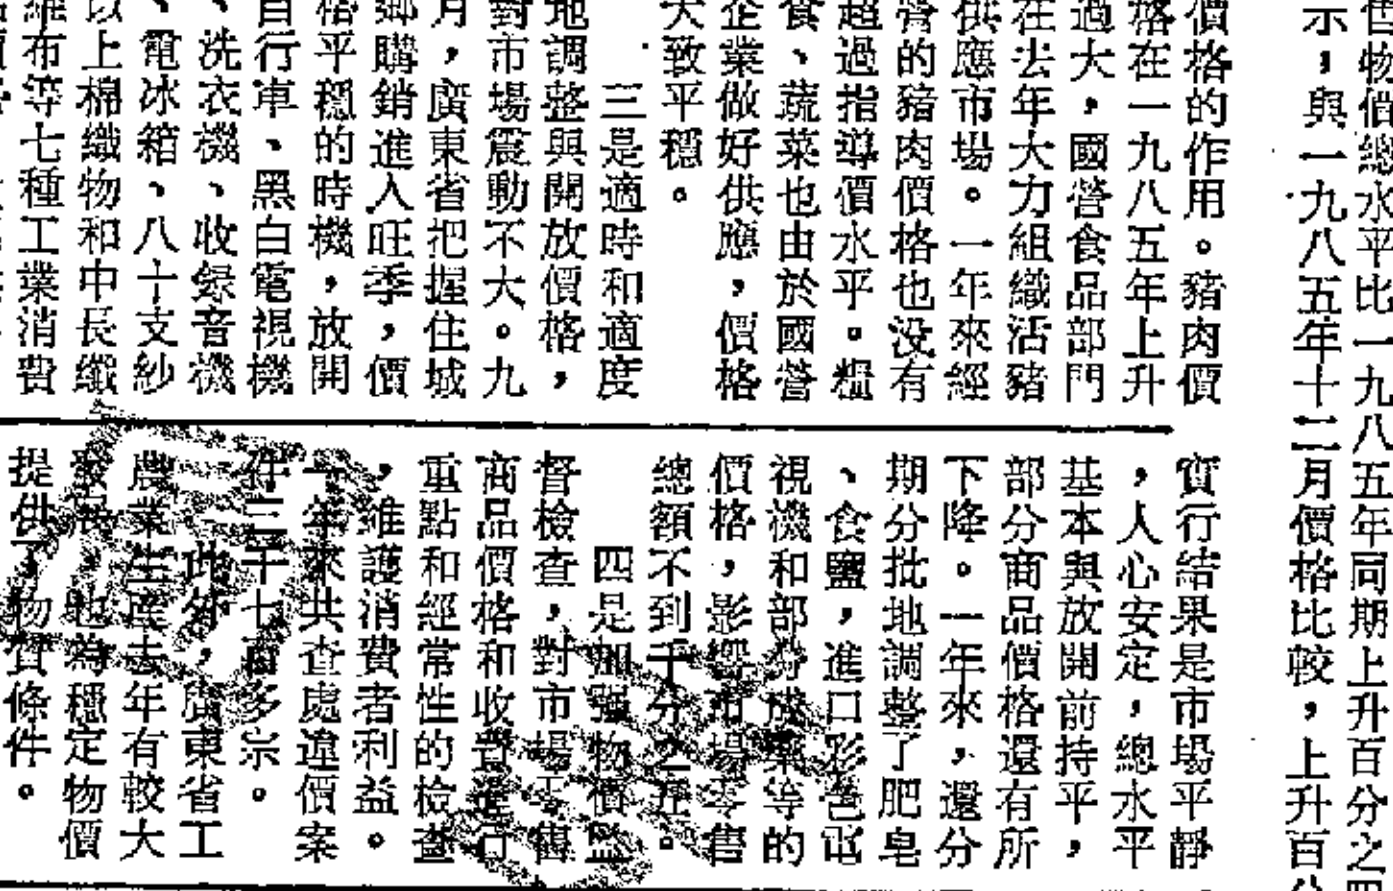 售物價總水平比一九八五年同期上升百分之四
示,與一九八五年十二月價格比較,上升百分
價格的作用。豬肉價
格在一九八五年上升
過大,國營食品部門
在去年大力組織活豬
供應市場。一年來經
營的豬肉價格也没有
超過指導價水平。糧
食、蔬菜也由於國營
企業做好供應,價格
大致平穩。
三是適時和適度
地調整與開放價格,
對市場震動不大。九
月,廣東省把握住城
鄉購銷進入旺季,價
格平穩的時機,放開
自行車、黑白電視機
、洗衣機、收録音機
、電冰箱、八十支紗
以上棉織物和中長纖
維布等七種工業消費
實行結果是市場平靜
,人心安定,總水平
基本與放開前持平,
部分商品價格還有所
下降。一年來,還分
期分批地調整了肥皂
、食鹽,進口彩色電
視機和部分成藥等的
價格,影響市場零售
總額不到千分之五。
四是加強物價監
督檢查,對市場零售
商品價格和收費進行
重點和經常性的檢查
,維護消費者利益。
一年來共查處違價案
件三千七百多宗。
此外,廣東省工
農業生産去年有較大
發展,也為穩定物價
提供了物質條件。